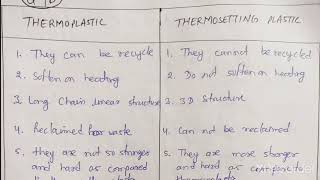 THERMOPLASTIC
THERMOSETTING PLASTIC
1. They can be recycle
1. They cannot be recycled
2. Soften on heating
2. Do not soften on heating
3. Long Chain linear structure
3. 3D Structure
4. Reclaimed waste
4. Can not be reclaimed
5. they are not so stronger
and hard as compared
5. They are more stronger
and hard as compare to